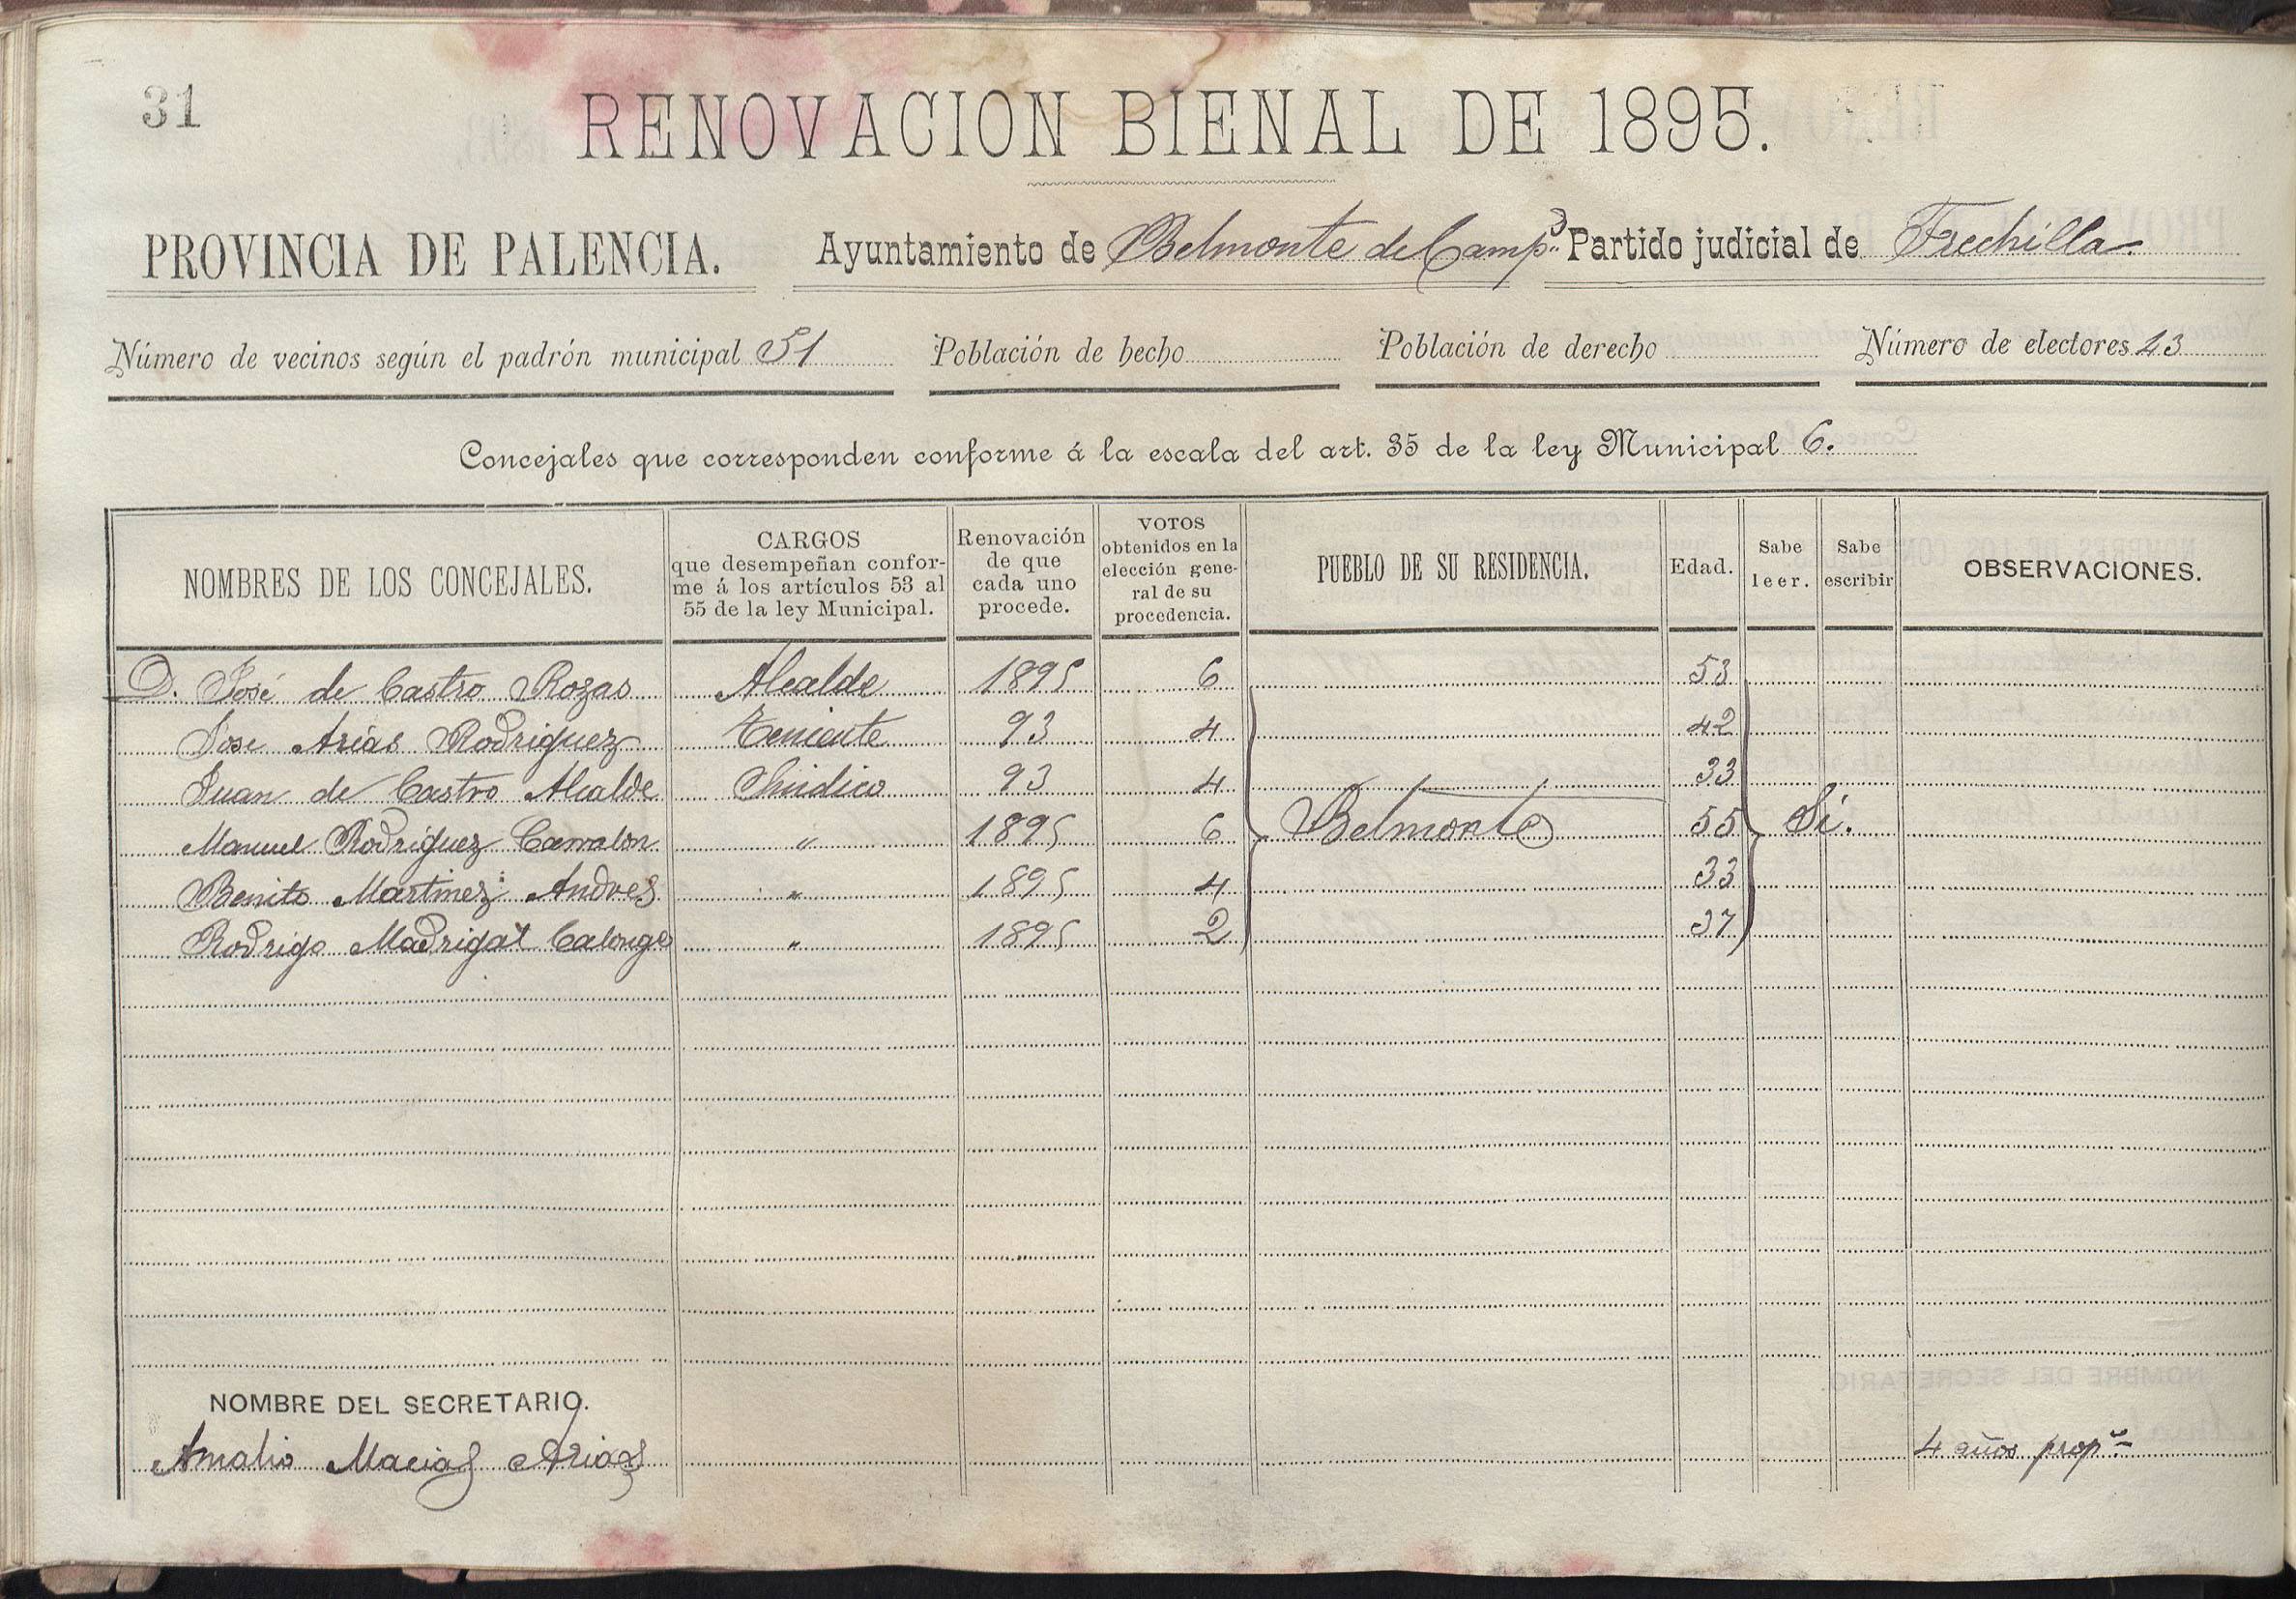 31
RENOVACION BIENAL DE 1895.
PROVINCIA DE PALENCIA. Ayuntamiento de Belmonte de Camp.ˢ Partido judicial de Frechilla.
Número de vecinos según el padrón municipal 51 Población de hecho Población de derecho Número de electores 43
Concejales que corresponden conforme á la escala del art. 35 de la ley Municipal 6.
NOMBRES DE LOS CONCEJALES. CARGOS que desempeñan confor- me á los artículos 53 al 55 de la ley Municipal. Renovación de que cada uno procede. VOTOS obtenidos en la elección gene- ral de su procedencia. PUEBLO DE SU RESIDENCIA. Edad. Sabe leer. Sabe escribir OBSERVACIONES.
D. José de Castro Rozas Alcalde 1895 6 53
Jose Arias Rodriguez Teniente 93 4 42
Juan de Castro Alcalde Sindico 93 4 33
Manuel Rodriguez " 1895 6 Belmonte 55 Si.
Benito Martinez Andres " 1895 4 33
Rodrigo Madrigal Calonge " 1895 2 37
NOMBRE DEL SECRETARIO.
Amalio Macias Arias 4 años prop.º